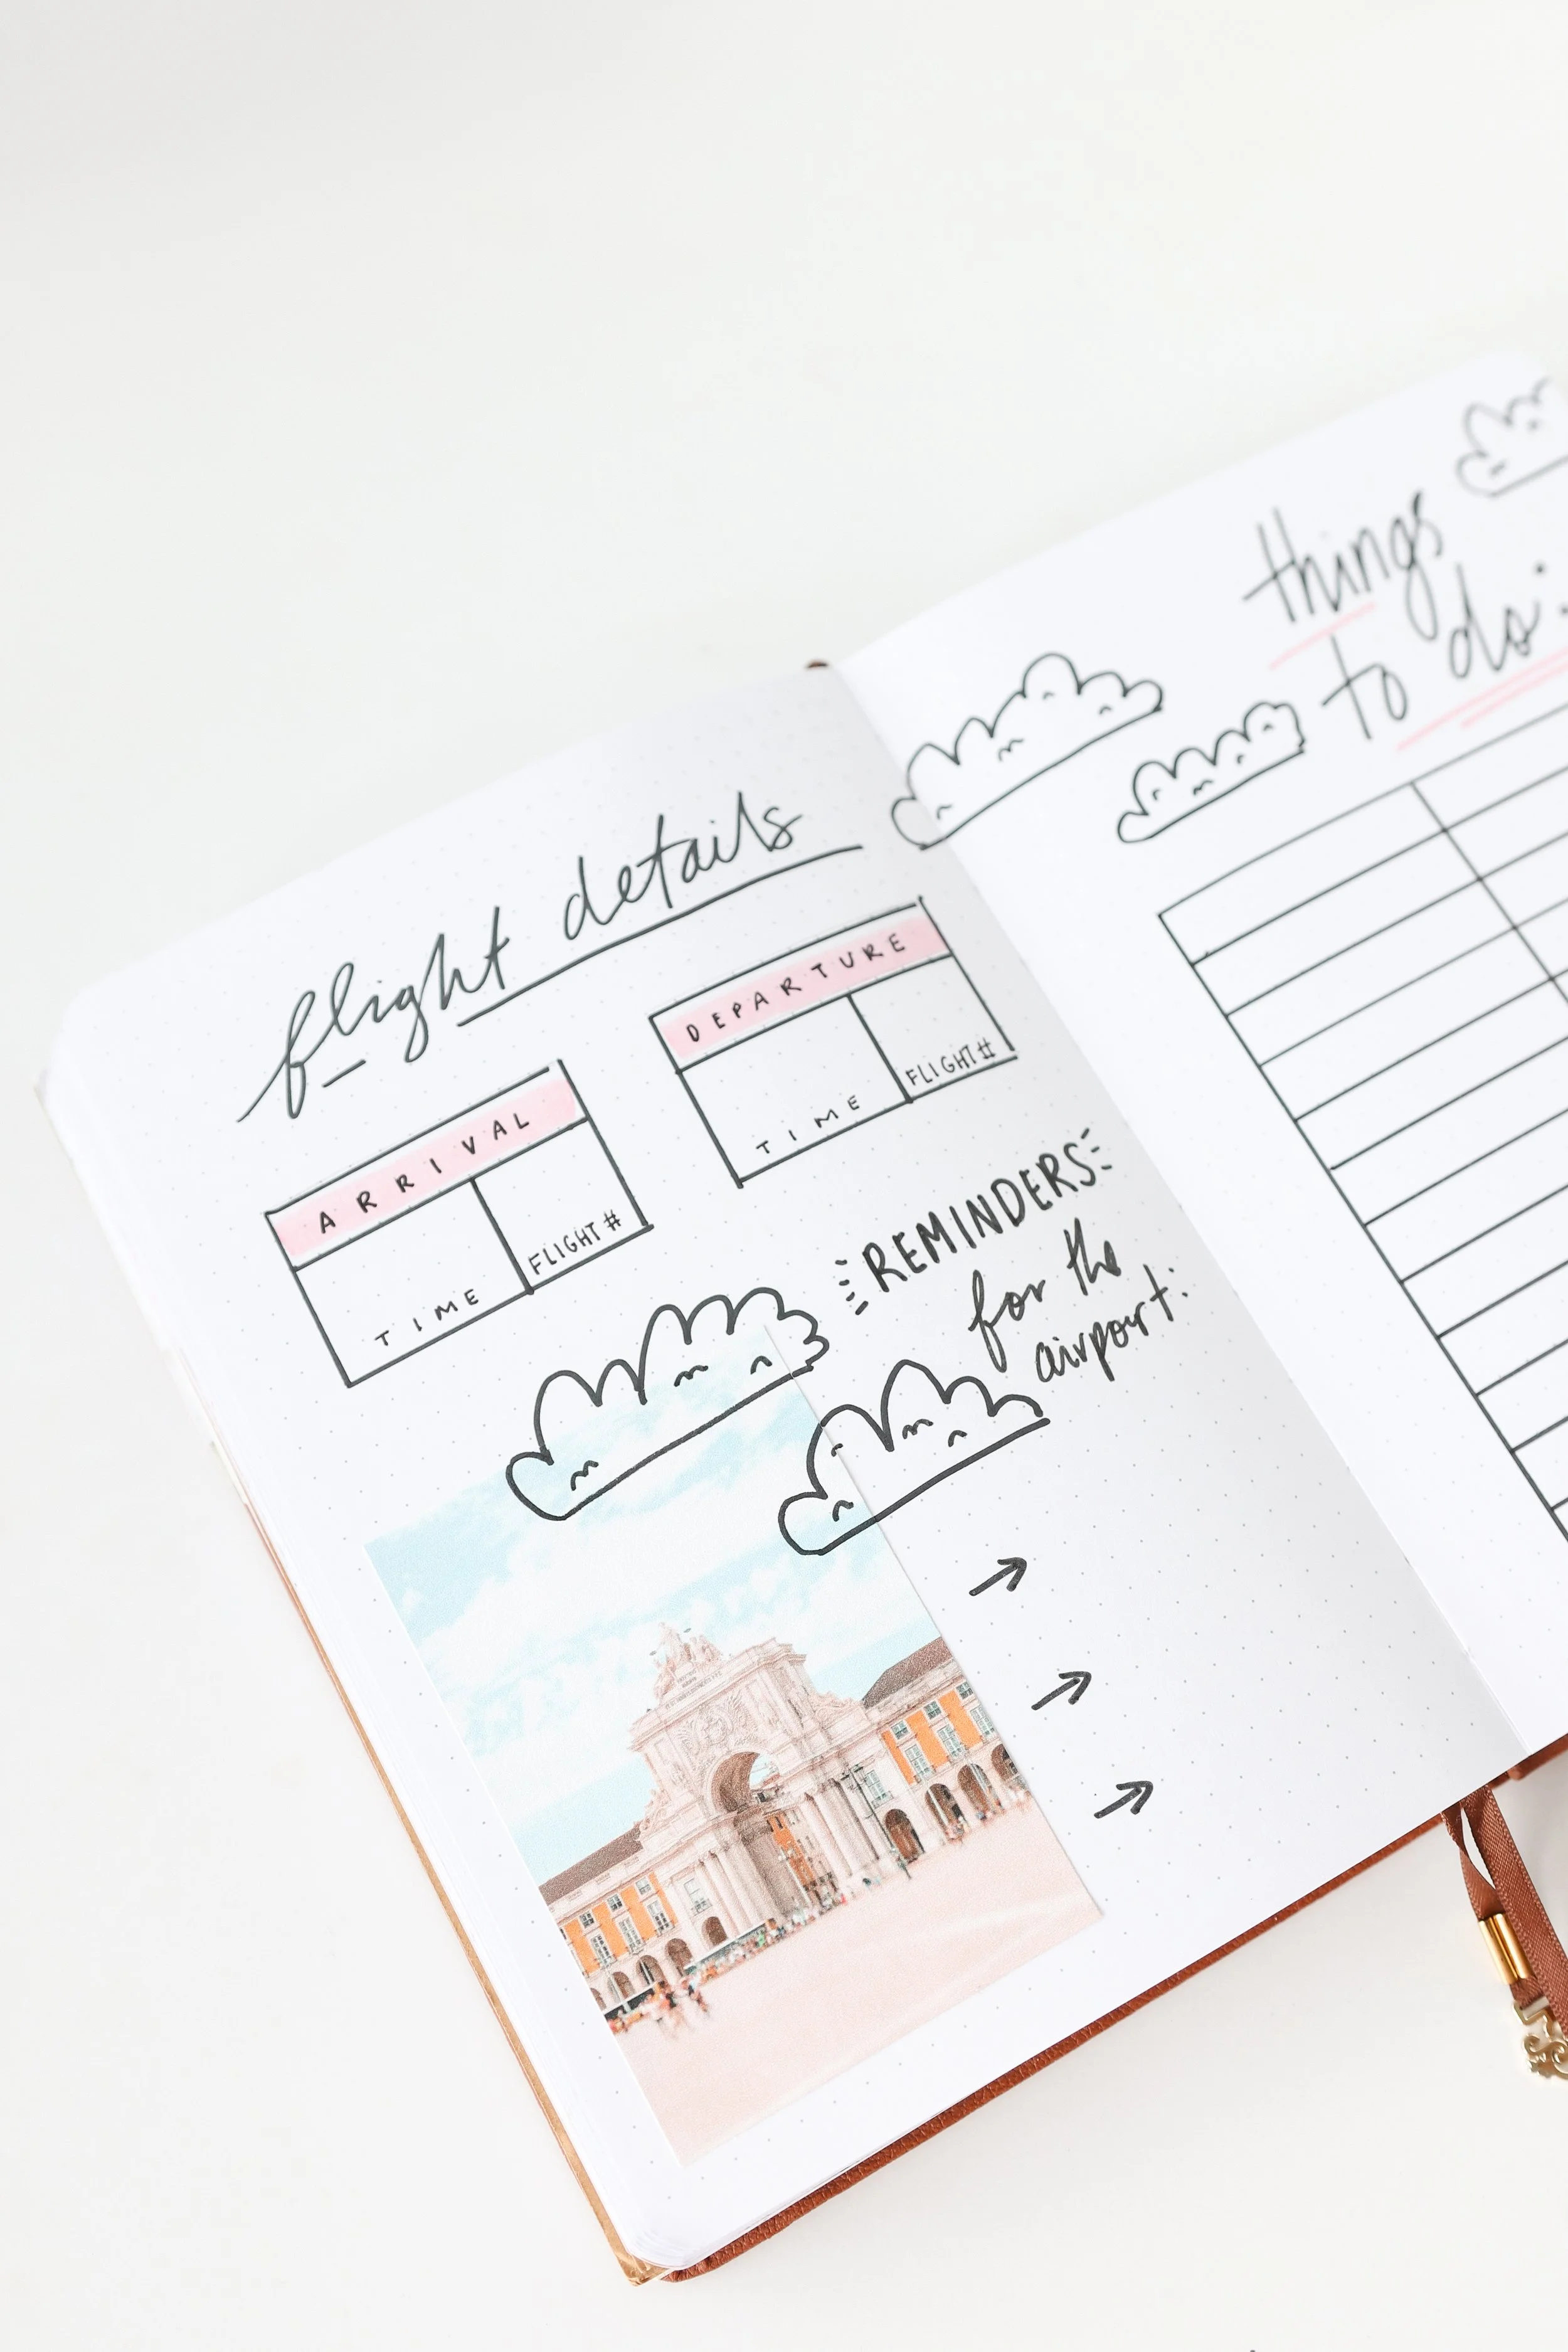 flight details
ARRIVAL
TIME
FLIGHT #
DEPARTURE
TIME
FLIGHT #
REMINDERS
for the
airport:
things
to do: